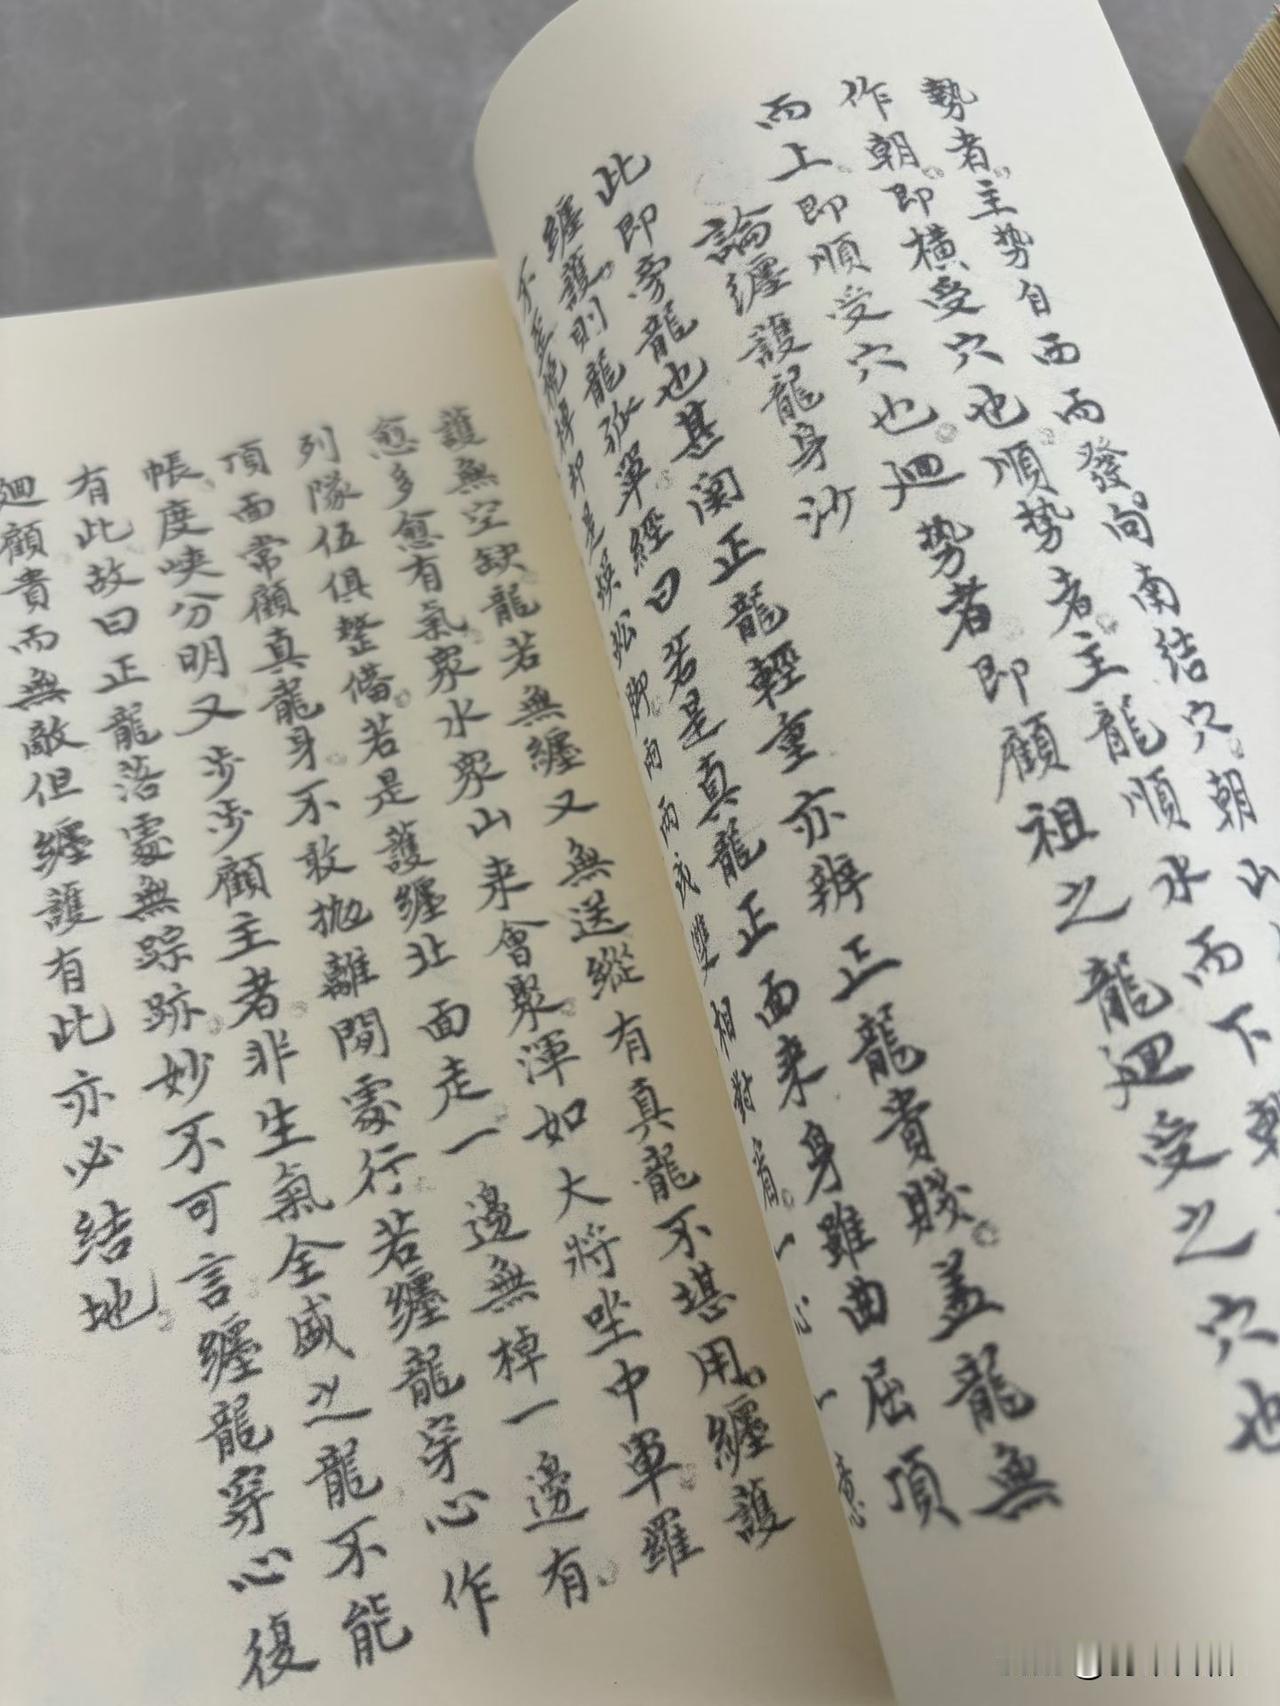 勢者。主势自西而發。向南結穴。朝山
作朝。即橫受穴也。順势者。主龍順水而下。朝
而上。即順受穴也。廻势者即顧祖之龍廻受之穴也
論纏護龍身沙
此即旁龍也甚関正龍輕重亦辨正龍貴賤。盖龍無
纏護。則龍孤單經曰若是真龍正面来身雖曲屈項
不歪却是脚。兩兩成雙相對看。一心一意
護無空缺龍若無纏又無送縱有真龍不堪用。纏護
愈多愈有氣。衆水衆山来會聚。渾如大將坐中軍。羅
列隊伍俱整備。若是護纏北面走一邊無棹一邊有。
項面常顧真龍身。不敢抛離閒處行。若纏龍穿心作
帳。度峽分明又步步顧主者。非生氣全盛之龍不能
有此故曰正龍落處無踪跡。妙不可言纏龍穿心復
廻顧貴而無敵但纏護有此亦必結地。